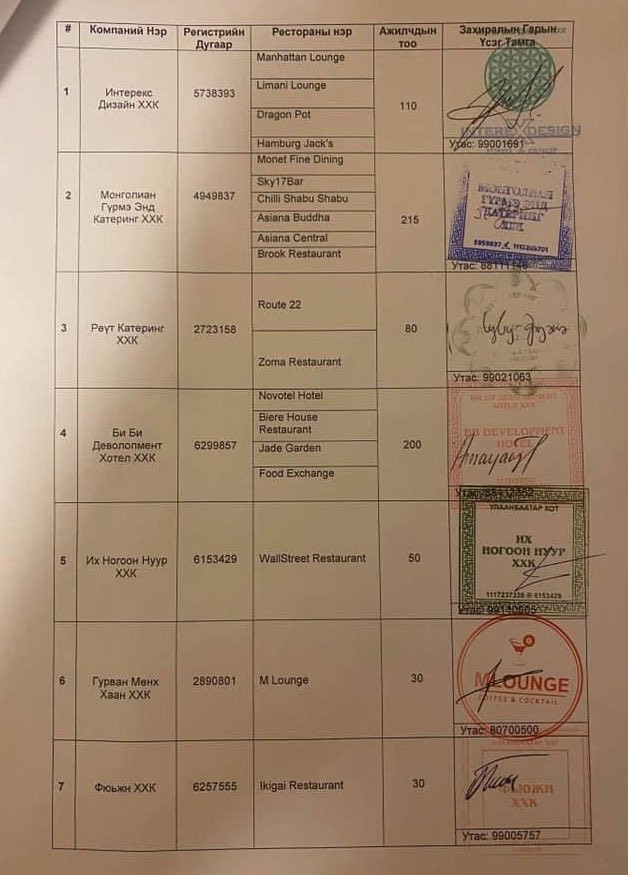 # Компаний Нэр Регистрийн Дугаар Рестораны нэр Ажилчдын тоо Захиралын Гарын Үсэг Тамга
1 Интерекс Дизайн ХХК 5738393 110
Manhattan Lounge
Limani Lounge
Dragon Pot
Hamburg Jack's
INTEREX DESIGN
Утас: 99001691
2 Монголиан Гүрмэ Энд Катеринг ХХК 4949837 215
Monet Fine Dining
Sky17Bar
Chilli Shabu Shabu
Asiana Buddha
Asiana Central
Brook Restaurant
МОНГОЛИАН
ГҮРМЭ ЭНД
КАТЕРИНГ
ХХК
3 Рөүт Катеринг ХХК 2723158 80
Route 22
Zoma Restaurant
Утас: 99021063
4 Би Би Деволопмент Хотел ХХК 6299857 200
Novotel Hotel
Biere House Restaurant
Jade Garden
Food Exchange
БИ БИ ДЕВЕЛОПМЕНТ
ХОТЕЛ ХХК
BB DEVELOPMENT
HOTEL
5 Их Ногоон Нуур ХХК 6153429 WallStreet Restaurant 50
УЛААНБААТАР ХОТ
ИХ
НОГООН НУУР
ХХК
6153429
6 Гурван Мөнх Хаан ХХК 2890801 M Lounge 30
M LOUNGE
COFFEE & COCKTAIL
Утас: 80700500
7 Фюьжн ХХК 6257555 Ikigai Restaurant 30
ФЬЮЖН
ХХК
Утас: 99005757